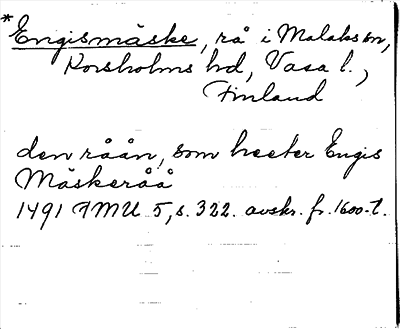 *Engismåske, rå i Malaks sn,
Korsholms hd, Vasa l.,
Finland
den råån, som heeter Engis
Måskeråå
1491 FMU 5, s. 322. avskr. fr. 1600-t.